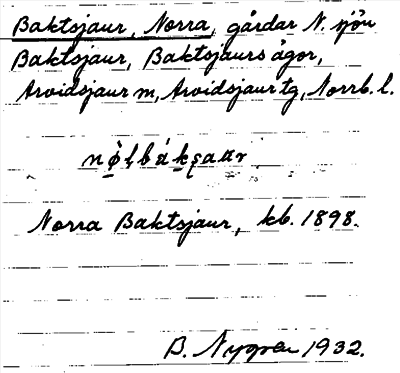 Baktsjaur, Norra, gårdar N. sjön
Baktsjaur, Baktsjaurs ägor,
Arvidsjaur m, Arvidsjaur tg, Norrb. l.
Norra Baktsjaur, kb. 1898.
B. Nygren 1932.